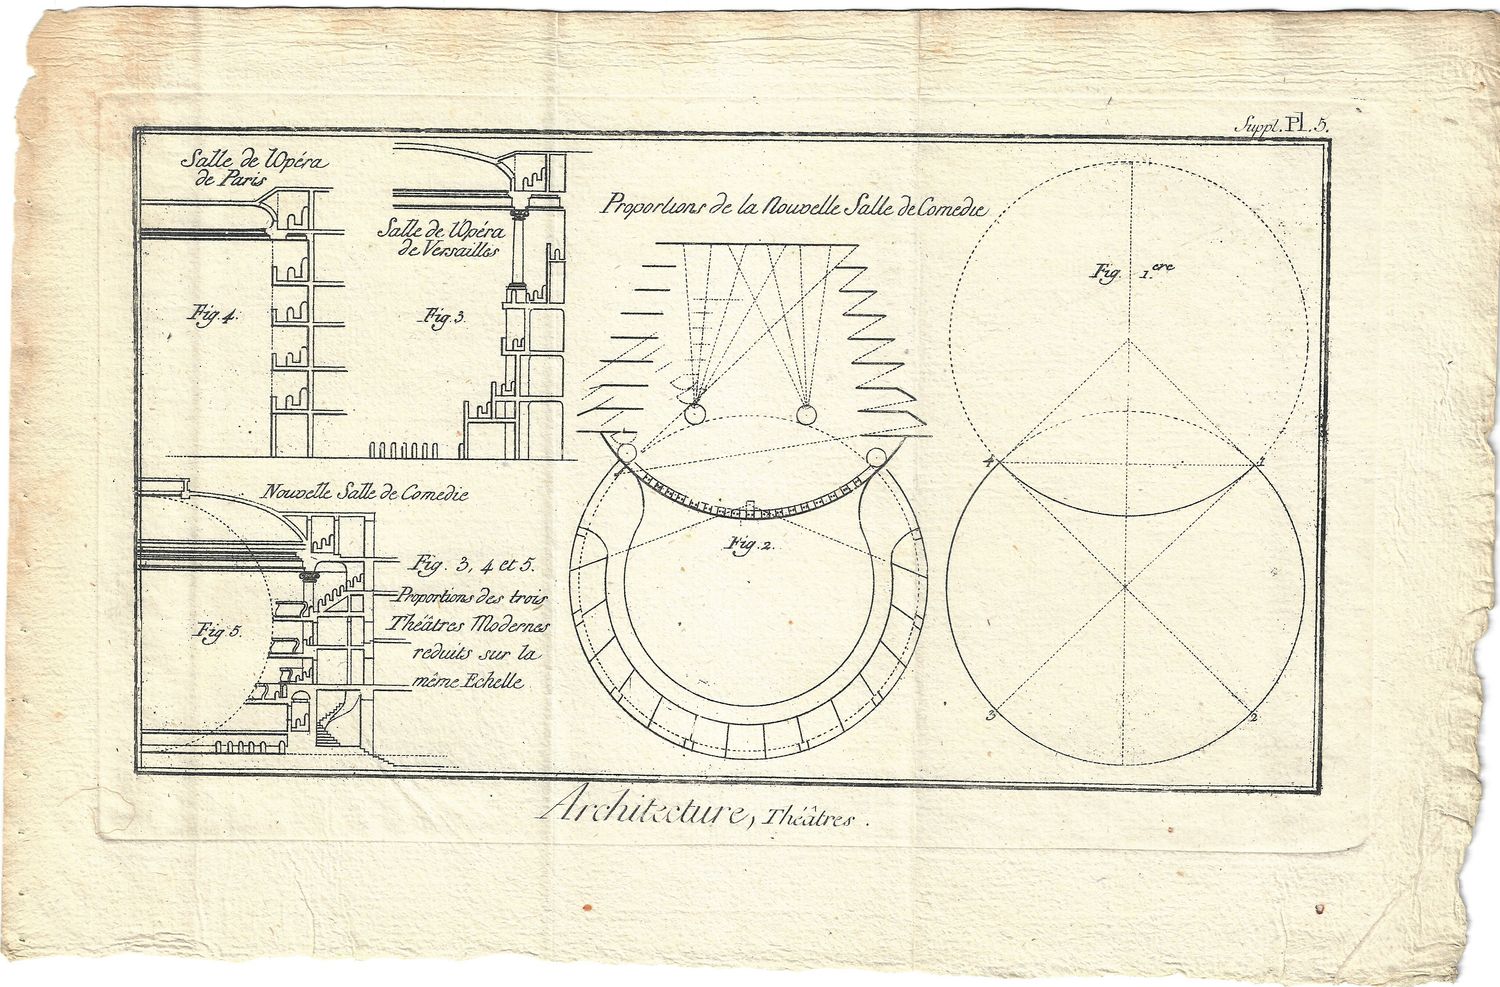 Suppl. Pl. 5.
Salle de l'Opéra
de Paris
Fig. 4.
Salle de l'Opéra
de Versailles
Fig. 3.
Proportions de la Nouvelle Salle de Comedie
Fig. 1.ere
4
1
3
2
Fig. 2.
Nouvelle Salle de Comedie
Fig. 5.
Fig. 3, 4 et 5.
Proportions des trois
Théâtres Modernes
reduits sur la
même Echelle
Architecture, Théâtres.